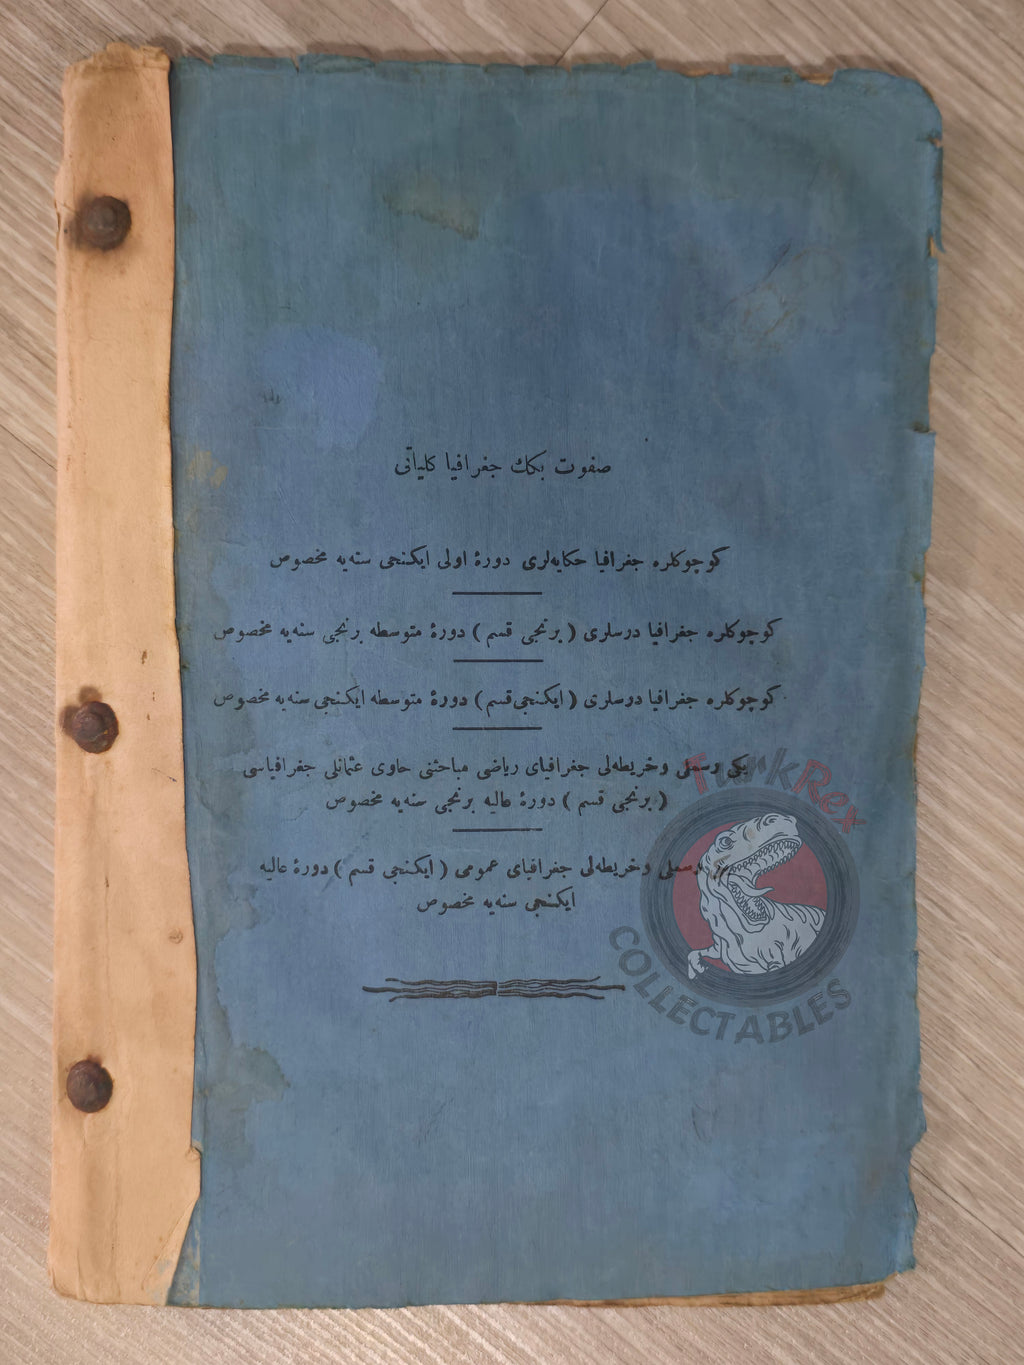 صفوت بكك جغرافيا كلياتى
كوچوكلره جغرافيا حكايه‌لرى دورهٔ اولى ايكنجى سنه‌يه مخصوص
كوچوكلره جغرافيا درسلرى ( برنجى قسم ) دورهٔ متوسطه برنجى سنه‌يه مخصوص
كوچوكلره جغرافيا درسلرى ( ايكنجى قسم ) دورهٔ متوسطه ايكنجى سنه‌يه مخصوص
يكى رسملى وخريطه‌لى جغرافياى رياضى مباحثنى حاوى عثمانلى جغرافياسى
( برنجى قسم ) دورهٔ عاليه برنجى سنه‌يه مخصوص
رسملى وخريطه‌لى جغرافياى عمومى ( ايكنجى قسم ) دورهٔ عاليه
ايكنجى سنه‌يه مخصوص
TurkRex
COLLECTABLES